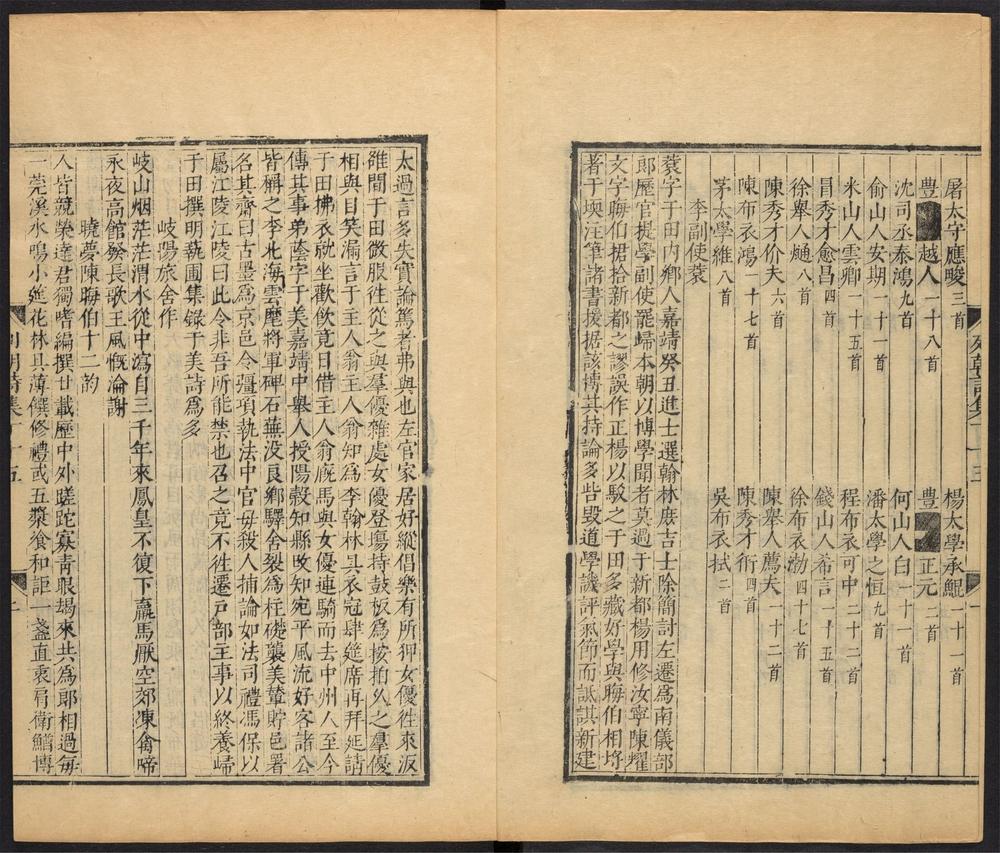 屠太守應畯三首
楊太學承鯤一十一首
豐越人一十八首
豐正元二首
沈司丞泰鴻九首
何山人白一十一首
俞山人安期一十一首
潘太學之恒九首
米山人雲卿一十五首
程布衣可中二十二首
冒秀才愈昌四首
錢山人希言一十五首
徐舉人𤊹八首
徐布衣渤四十七首
陳秀才价夫六首
陳舉人薦夫一十二首
陳布衣鴻一十七首
陳秀才衎四首
茅太學維八首
吳布衣拭二首
李副使蓘
蓘字于田內鄉人嘉靖癸丑進士選翰林庶吉士除簡討左遷爲南儀部
郎歷官提學副使罷歸本朝以博學聞者莫過于新都楊用修汝寧陳耀
文字晦伯捃拾新都之謬誤作正楊以駁之于田多藏好學與晦伯相埒
者于墺注筆諸書援据該博其持論多呰毀道學譏評氣節而詆諆新建
列朝詩集丁十五
一
太過言多失實論篤者弗與也左官家居好縱倡樂有所狎女優徃來汳
雒間于田微服徃從之與羣優雜處女優登塲持鼓板爲按拍久之羣優
相與目笑漏言于主人翁主人翁知爲李翰林具衣冠肆筵席再拜延請
于田拂衣就坐歡飲竟日借主人翁廐馬與女優連騎而去中州人至今
傳其事弟蔭字于美嘉靖中舉人授陽穀知縣攺知宛平風流好客諸公
皆稱之李北海雲麾將軍碑石蕪沒良鄉驛舍裂爲柱礎襲美輦貯邑署
名其齋曰古墨爲京邑令彊項執法中官毋殺人捕論如法司禮馮保以
屬江陵江陵曰此令非吾所能禁也召之竟不徃遷戸部主事以終養歸
于田撰明蓺圃集錄于美詩爲多
岐陽旅舍作
岐山烟茫茫渭水從中瀉自三千年來鳳皇不復下羸馬厭空郊凍禽啼
永夜高館發長歌王風慨淪謝
曉夢陳晦伯十二韵
人皆競榮達君獨嗜編撰廿載歷中外蹉跎寡青眼朅來共爲郎相過每
一莞溪水鳴小筵花林具薄饌修禮或五漿飧和詎一盞直衷肩衛鰌博
列朝詩集丁十五
二